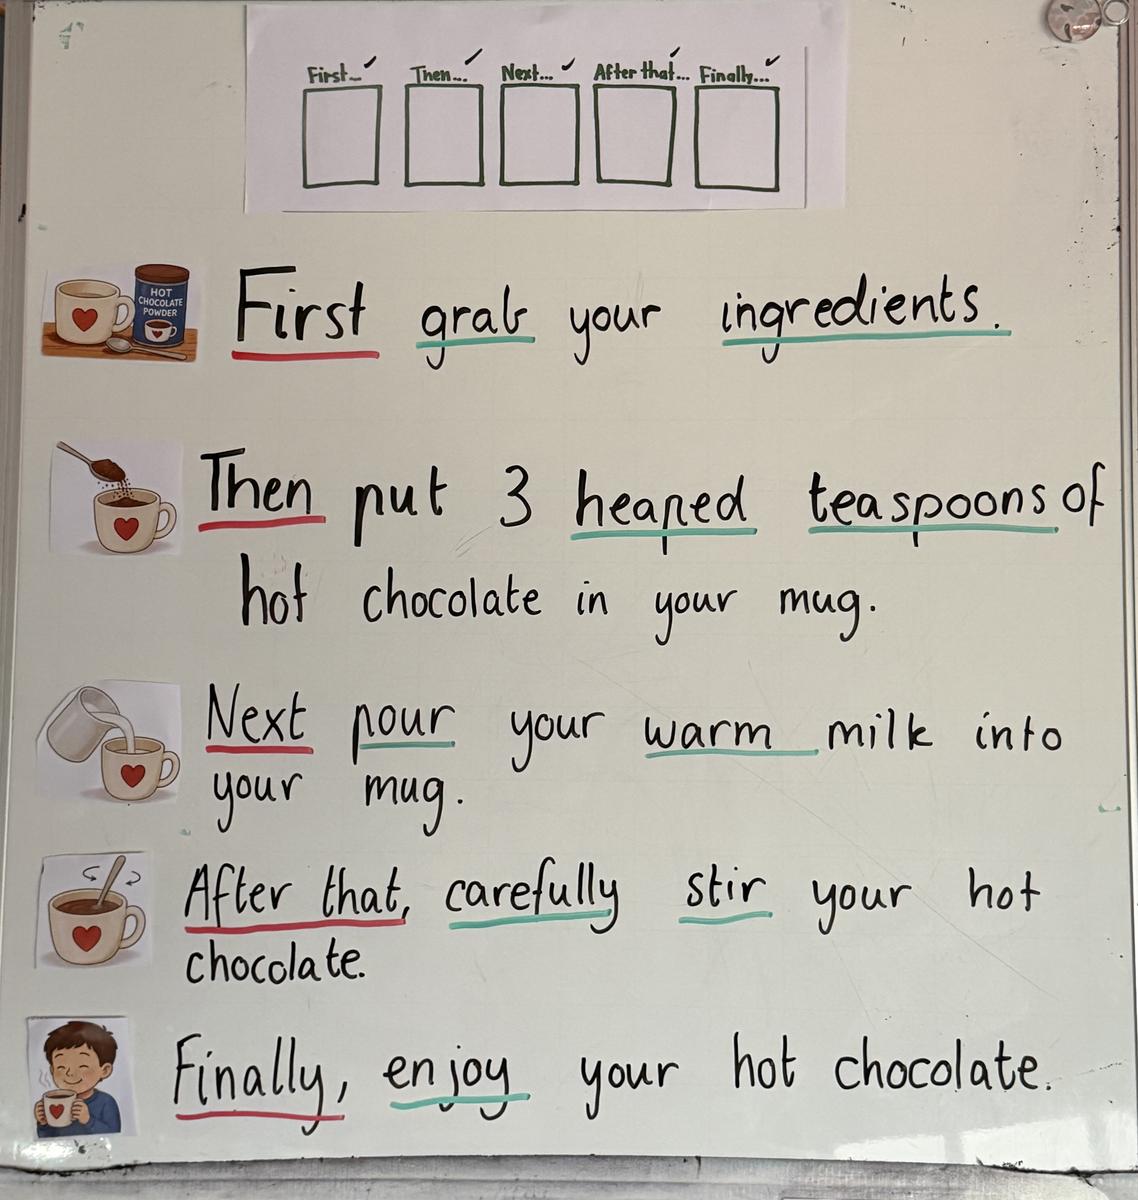 First... ✓ Then... ✓ Next... ✓ After that... ✓ Finally... ✓
HOT
CHOCOLATE
POWDER
First grab your ingredients.
Then put 3 heaped teaspoons of
hot chocolate in your mug.
Next pour your warm milk into
your mug.
After that, carefully stir your hot
chocolate.
Finally, enjoy your hot chocolate.